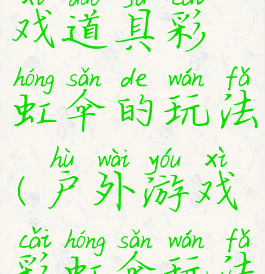 xì dào jù cǎi
戏道具彩
hóng sǎn de wán fǎ
虹伞的玩法
hù wài yóu xì
(户外游戏
cǎi hóng sǎn wán fǎ
彩虹伞玩法